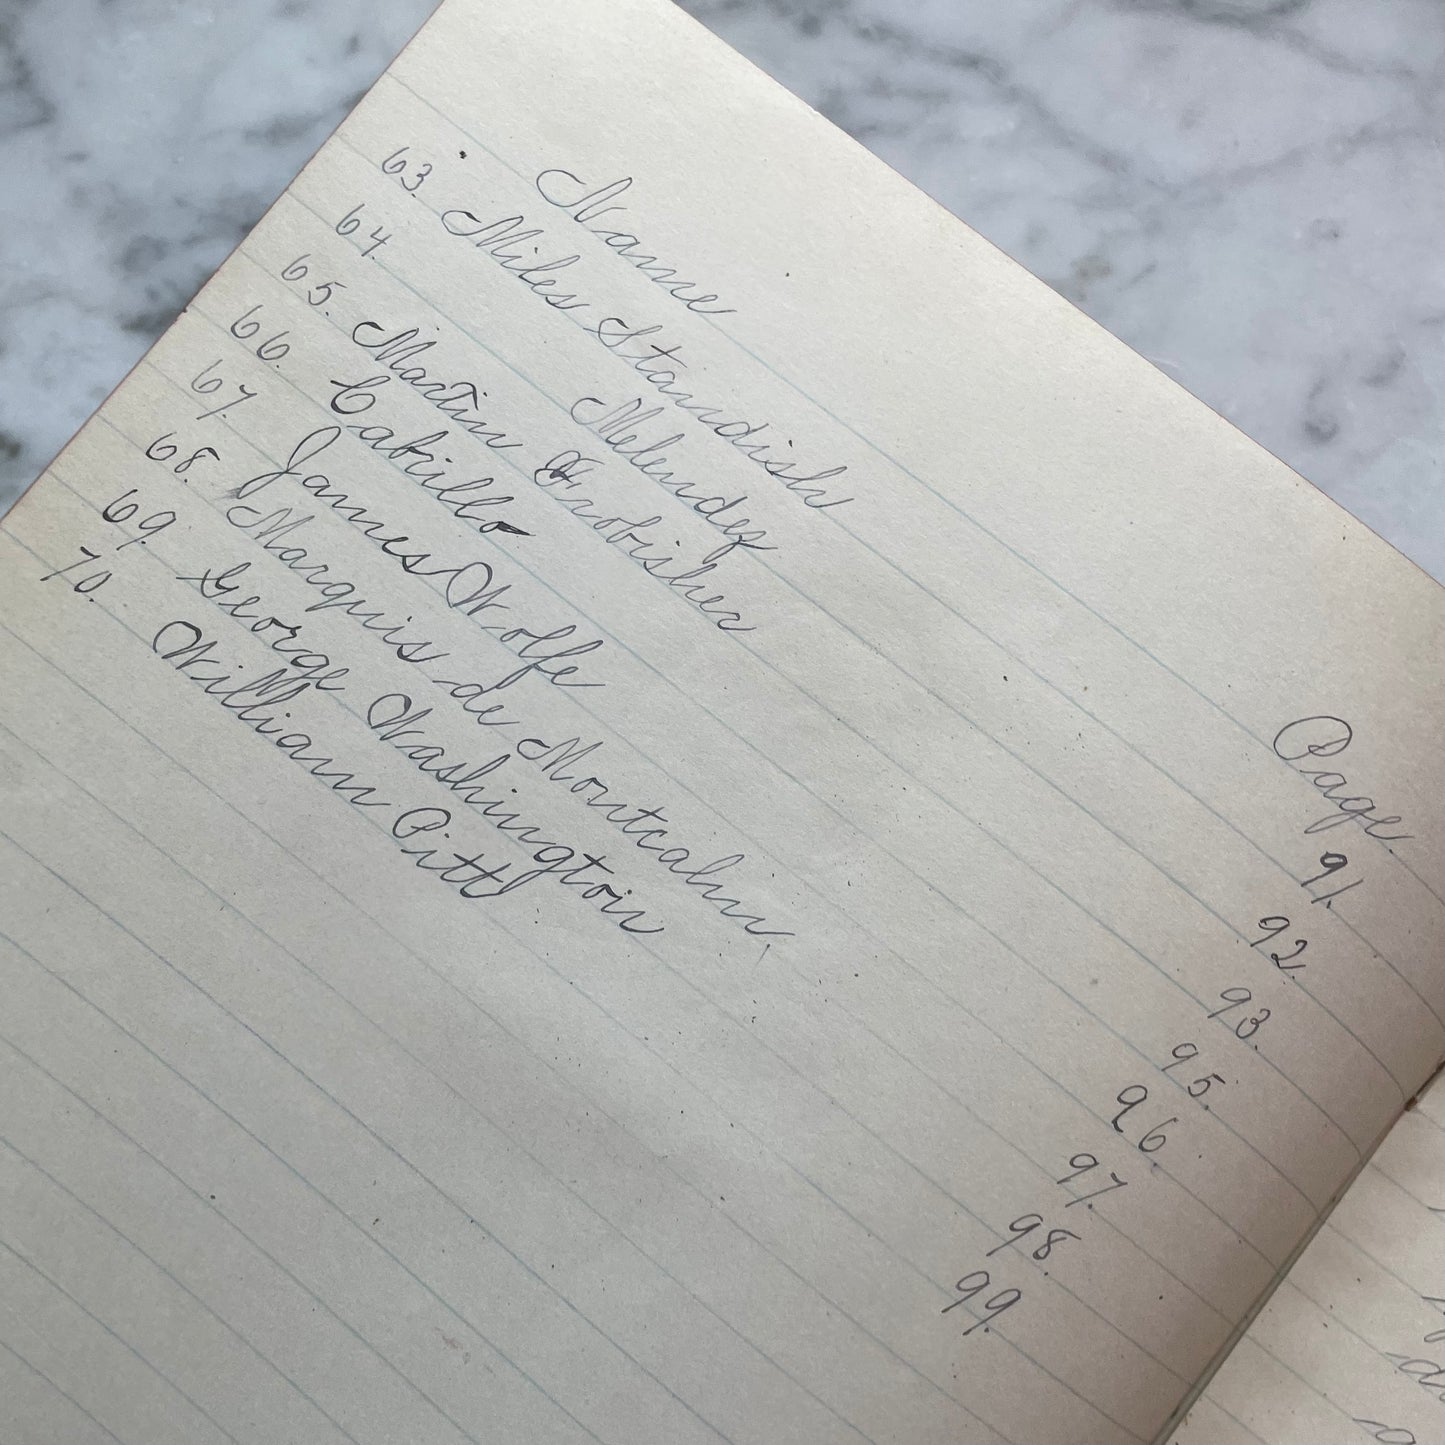 Name Page
63. Miles Standish 91.
64. Melendez 92.
65. Martin Frobisher 93.
66. Cabrillo 95.
67. James Wolfe 96.
68. Marquis de Montcalm. 97.
69. George Washington 98.
70. William Pitt 99.